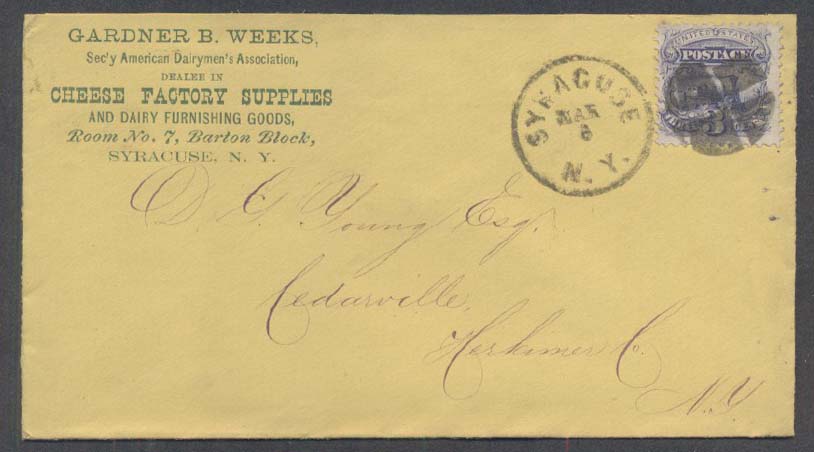 GARDNER B. WEEKS,
Sec'y American Dairymen's Association,
DEALER IN
CHEESE FACTORY SUPPLIES
AND DAIRY FURNISHING GOODS,
Room No. 7, Barton Block,
SYRACUSE, N. Y.
SYRACUSE
MAR
6
N. Y.
UNITED STATES
POSTAGE
3
D. G. Young Esq.
Cedarville,
Herkimer Co.
N.Y.